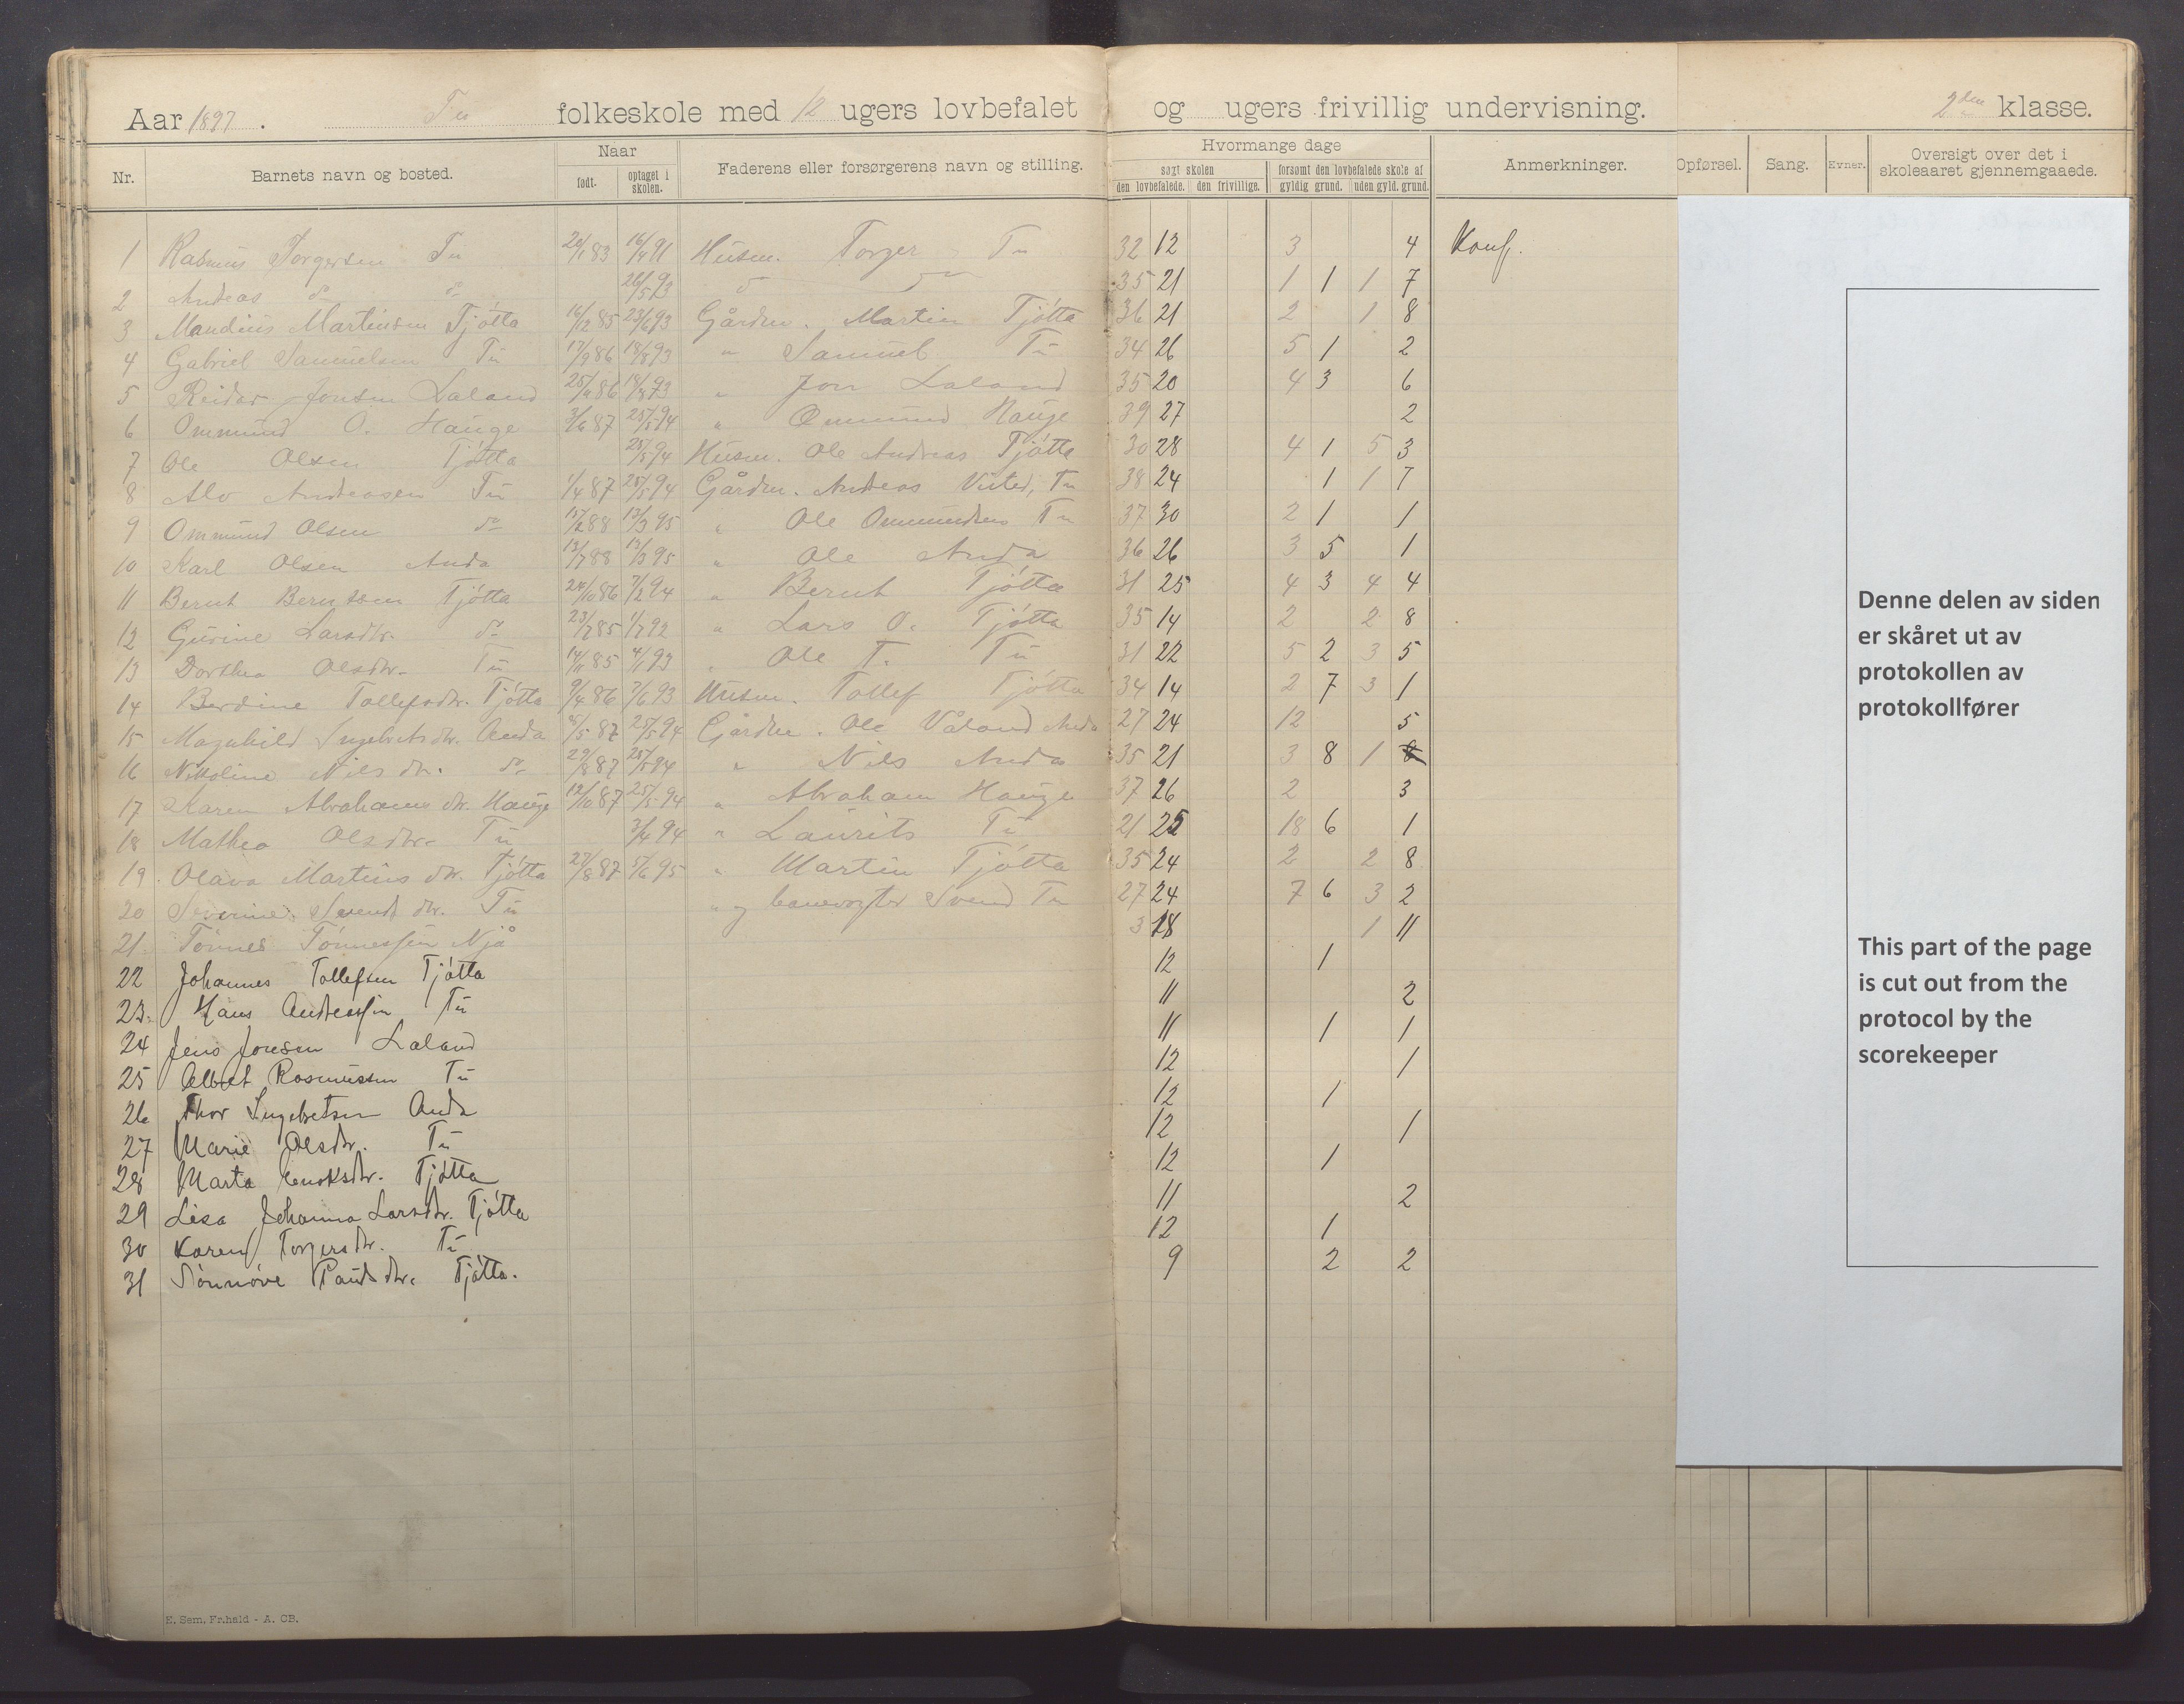 Aar 1897. Tu folkeskole med 12 ugers lovbefalet og ugers frivillig undervisning. 2den klasse.
Nr. Barnets navn og bosted. Naar født. optaget i skolen. Faderens eller forsørgerens navn og stilling. Hvormange dage søgt skolen den lovbefalede. den frivillige. forsømt den lovbefalede skole af gyldig grund. uden gyld. grund. Anmerkninger. Opførsel. Sang. Evner. Oversigt over det i skoleaaret gjennemgaaede.
1 Rasmus Torgersen Tu 20/1 83 16/4 91 Husm. Torger Tu 32 12 3 4 Konf.
2 Andeas do do 26/5 93 do do 35 21 1 1 1 7
3 Maudius Martinsen Tjøtta 16/12 85 23/6 93 Gårdm. Martin Tjøtta 36 21 2 1 8
4 Gabriel Samuelsen Tu 17/9 86 18/8 93 " Samuel Tu 34 26 5 1 2
5 Reidar Jonsen Laland 86 18/8 93 " Jon Laland 35 20 4 3 6
6 Ommund O. Hauge 3/6 87 25/5 94 " Ommund Hauge 39 27 2
7 Ole Olsen Tjøtta 25/5 94 Husm. Ole Andreas Tjøtta 30 28 4 1 5 3
8 Alv Andeasen Tu 1/4 87 25/5 94 Gårdm. Andeas Visted, Tu 38 24 1 1 7
9 Ommund Olsen do 15/2 88 13/3 95 " Ole Ommundsen Tu 37 30 2 1 1
10 Karl Olsen Anda 13/7 88 13/3 95 " Ole Anda 36 26 3 5 1
11 Bernt Berntsen Tjøtta 24/10 86 7/2 94 " Bernt Tjøtta 31 25 4 3 4 4
12 Gurine Larsdtr. do 23/7 85 1/7 92 " Lars O. Tjøtta 35 14 2 2 8
13 Dorthea Olsdtr. Tu 14/11 85 4/1 93 " Ole T. Tu 31 22 5 2 3 5
14 Berdine Tollefsdtr. Tjøtta 9/4 86 7/6 93 Husm. Tollef Tjøtta 34 14 2 7 3 1
15 Magnhild Ingebretsdtr. Anda 87 25/5 94 Gårdm. Ole Våland Anda 27 24 12 5
16 Nikoline Nilsdtr. do 29/8 87 25/5 94 " Nils Anda 35 21 3 8 1 8
17 Karen Abrahamsdtr. Hauge 12/10 87 25/5 94 " Abraham Hauge 37 26 2 3
18 Mathea Olsdtr. Tu 3/4 94 " Laurits Tu 21 25 18 6 1
19. Olava Martinsdtr. Tjøtta 27/8 87 5/6 95 " Martin Tjøtta 35 24 2 2 8
20 Severine Svendsdtr. Tu " og banevogter Svend Tu 27 24 7 6 3 2
21. Tønnes Tønnessen Njå 3 18 1 11
22 Johannes Tollefsen Tjøtta 12 1
23. Hans Andreassen Tu 11 2
24 Jens Jonsen Laland 11 1 1
25 Albret Rasmussen Tu 12 1
26 Thor Ingebretsen Anda 12 1
27 Marie Olsdtr. Tu 12 1
28 Marta Enoksdtr. Tjøtta 12 1
29 Lisa Johanna Larsdtr. Tjøtta 11 2
30 Karen Torgersdtr. Tu 12 1
31 Sønnøve Paulsdtr. Tjøtta. 9 2 2
Denne delen av siden
er skåret ut av
protokollen av
protokollfører
This part of the page
is cut out from the
protocol by the
scorekeeper
E. Sem, Fr.hald - A. CB.